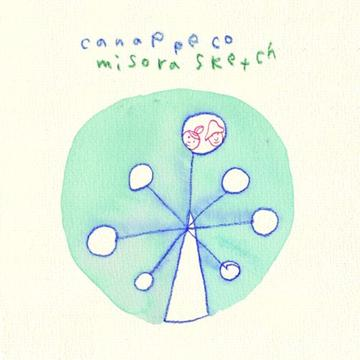 canappeco
misora sketch